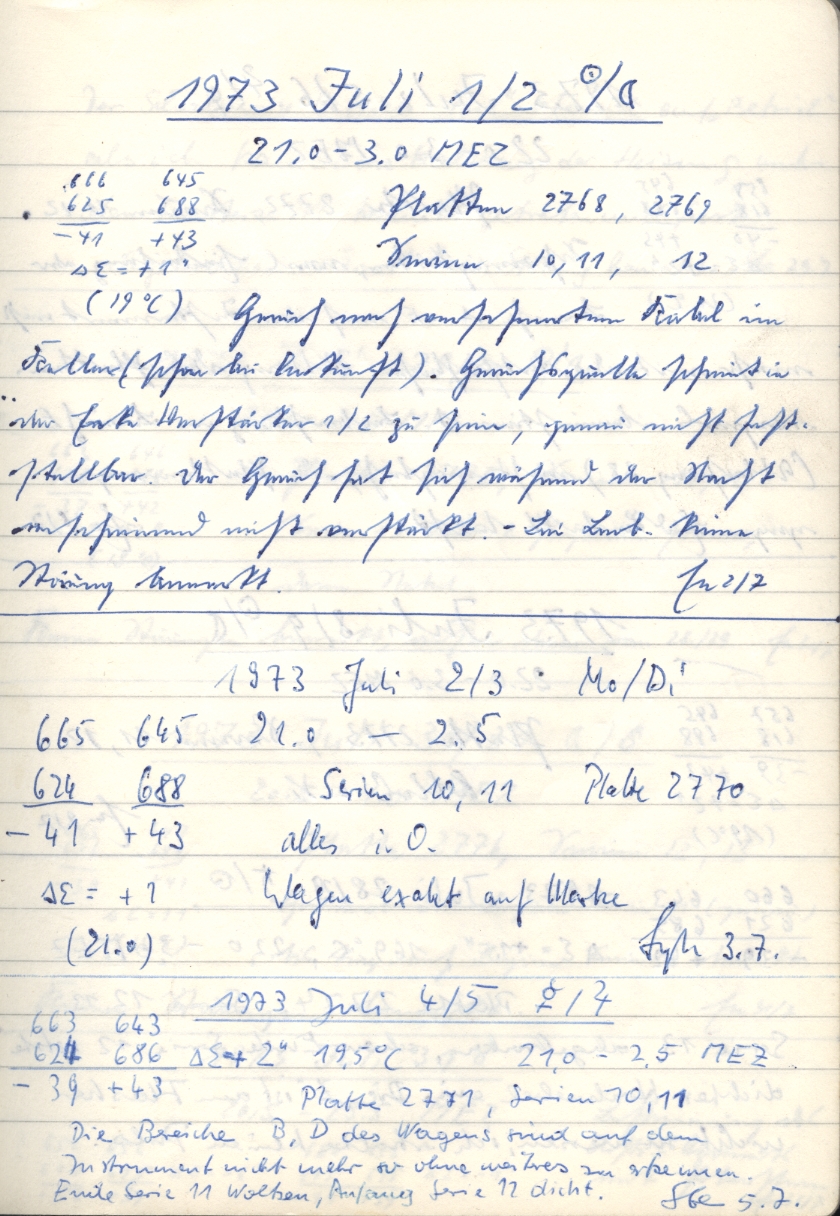 1973 Juli 1/2 ☉/☾
21.0 – 3.0 MEZ
666 645
625 688 Platten 2768, 2769
–41 +43
Δε = +1" Serien 10, 11, 12
(19°C) Geruch nach verschmortem Kabel im
Keller (schon bei Ankunft). Geruchsquelle scheint in
der Ecke Verstärker 1/2 zu sein, genau nicht fest-
stellbar. Der Geruch hat sich während der Nacht
anscheinend nicht verstärkt. – Bei Beob. keine
Störung bemerkt. 2/7
1973 Juli 2/3 Mo/Di
665 645 21.0 — 2.5
624 688 Serien 10, 11 Platte 2770
– 41 + 43 alles i. O.
Δε = + 1 Wagen exakt auf Marke
(21.0) 3.7.
1973 Juli 4/5 ☿/♃
663 643
624 686 Δε + 2" 19,5°C 21,0 – 2,5 MEZ
– 39 + 43 Platte 2771, Serien 10, 11
Die Bereiche B, D des Wagens sind auf dem
Instrument nicht mehr so ohne weitres zu erkennen.
Ende Serie 11 Wolken, Anfang Serie 12 dicht. 5.7.